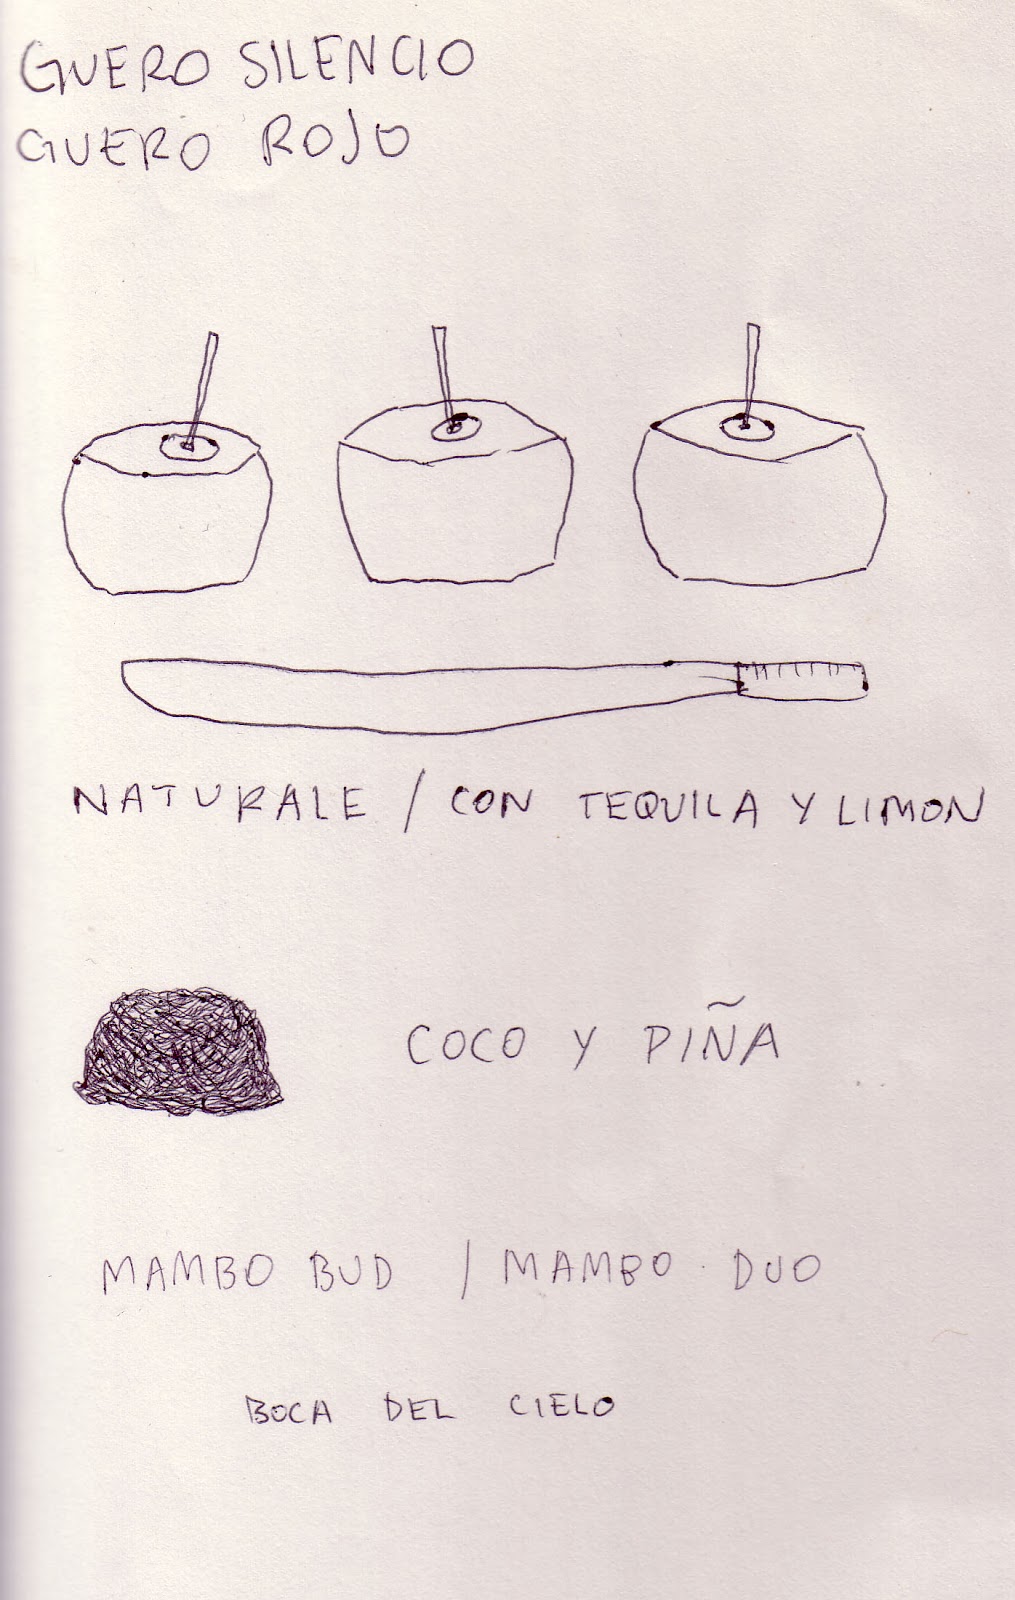 GUERO SILENCIO
GUERO ROJO
NATURALE / CON TEQUILA Y LIMON
COCO Y PIÑA
MAMBO BUD / MAMBO DUO
BOCA DEL CIELO